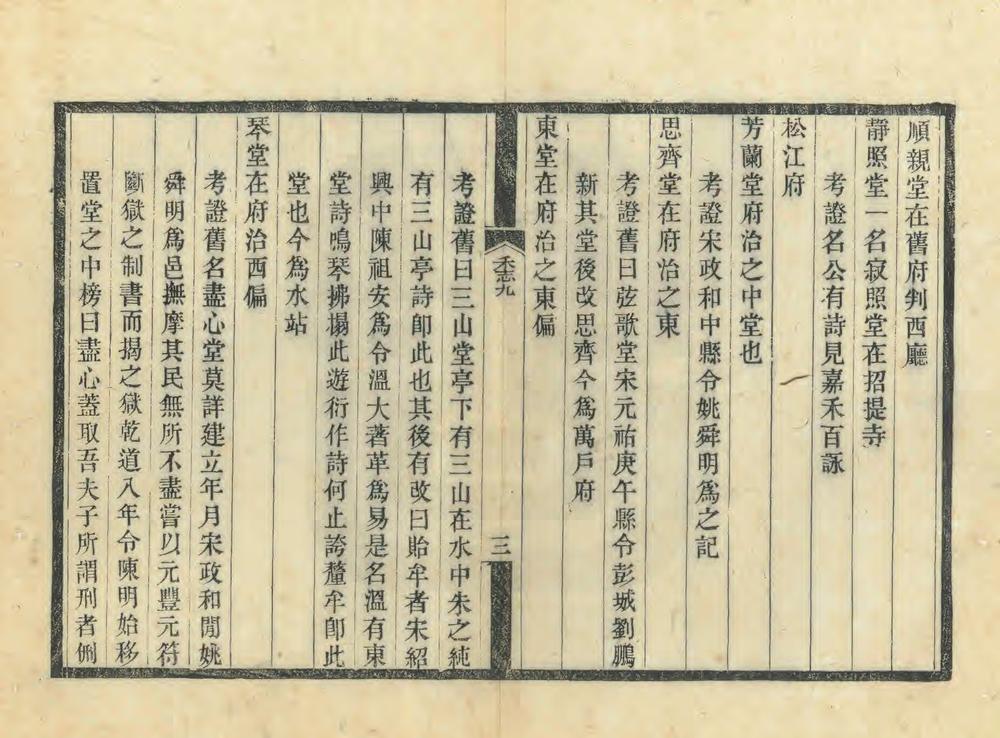 順親堂在舊府判西廳
靜照堂一名寂照堂在招提寺
考證名公有詩見嘉禾百詠
松江府
芳蘭堂府治之中堂也
考證宋政和中縣令姚舜明爲之記
思齊堂在府治之東
考證舊曰弦歌堂宋元祐庚午縣令彭城劉鵬
新其堂後改思齊今爲萬戶府
東堂在府治之東偏
禾志九
三
考證舊曰三山堂亭下有三山在水中朱之純
有三山亭詩卽此也其後有改曰貽牟者宋紹
興中陳祖安爲令溫大著革爲易是名溫有東
堂詩鳴琴拂榻此遊衍作詩何止誇釐牟卽此
堂也今爲水站
琴堂在府治西偏
考證舊名盡心堂莫詳建立年月宋政和閒姚
舜明爲邑撫摩其民無所不盡嘗以元豐元符
斷獄之制書而揭之獄乾道八年令陳明始移
置堂之中榜曰盡心蓋取吾夫子所謂刑者侀